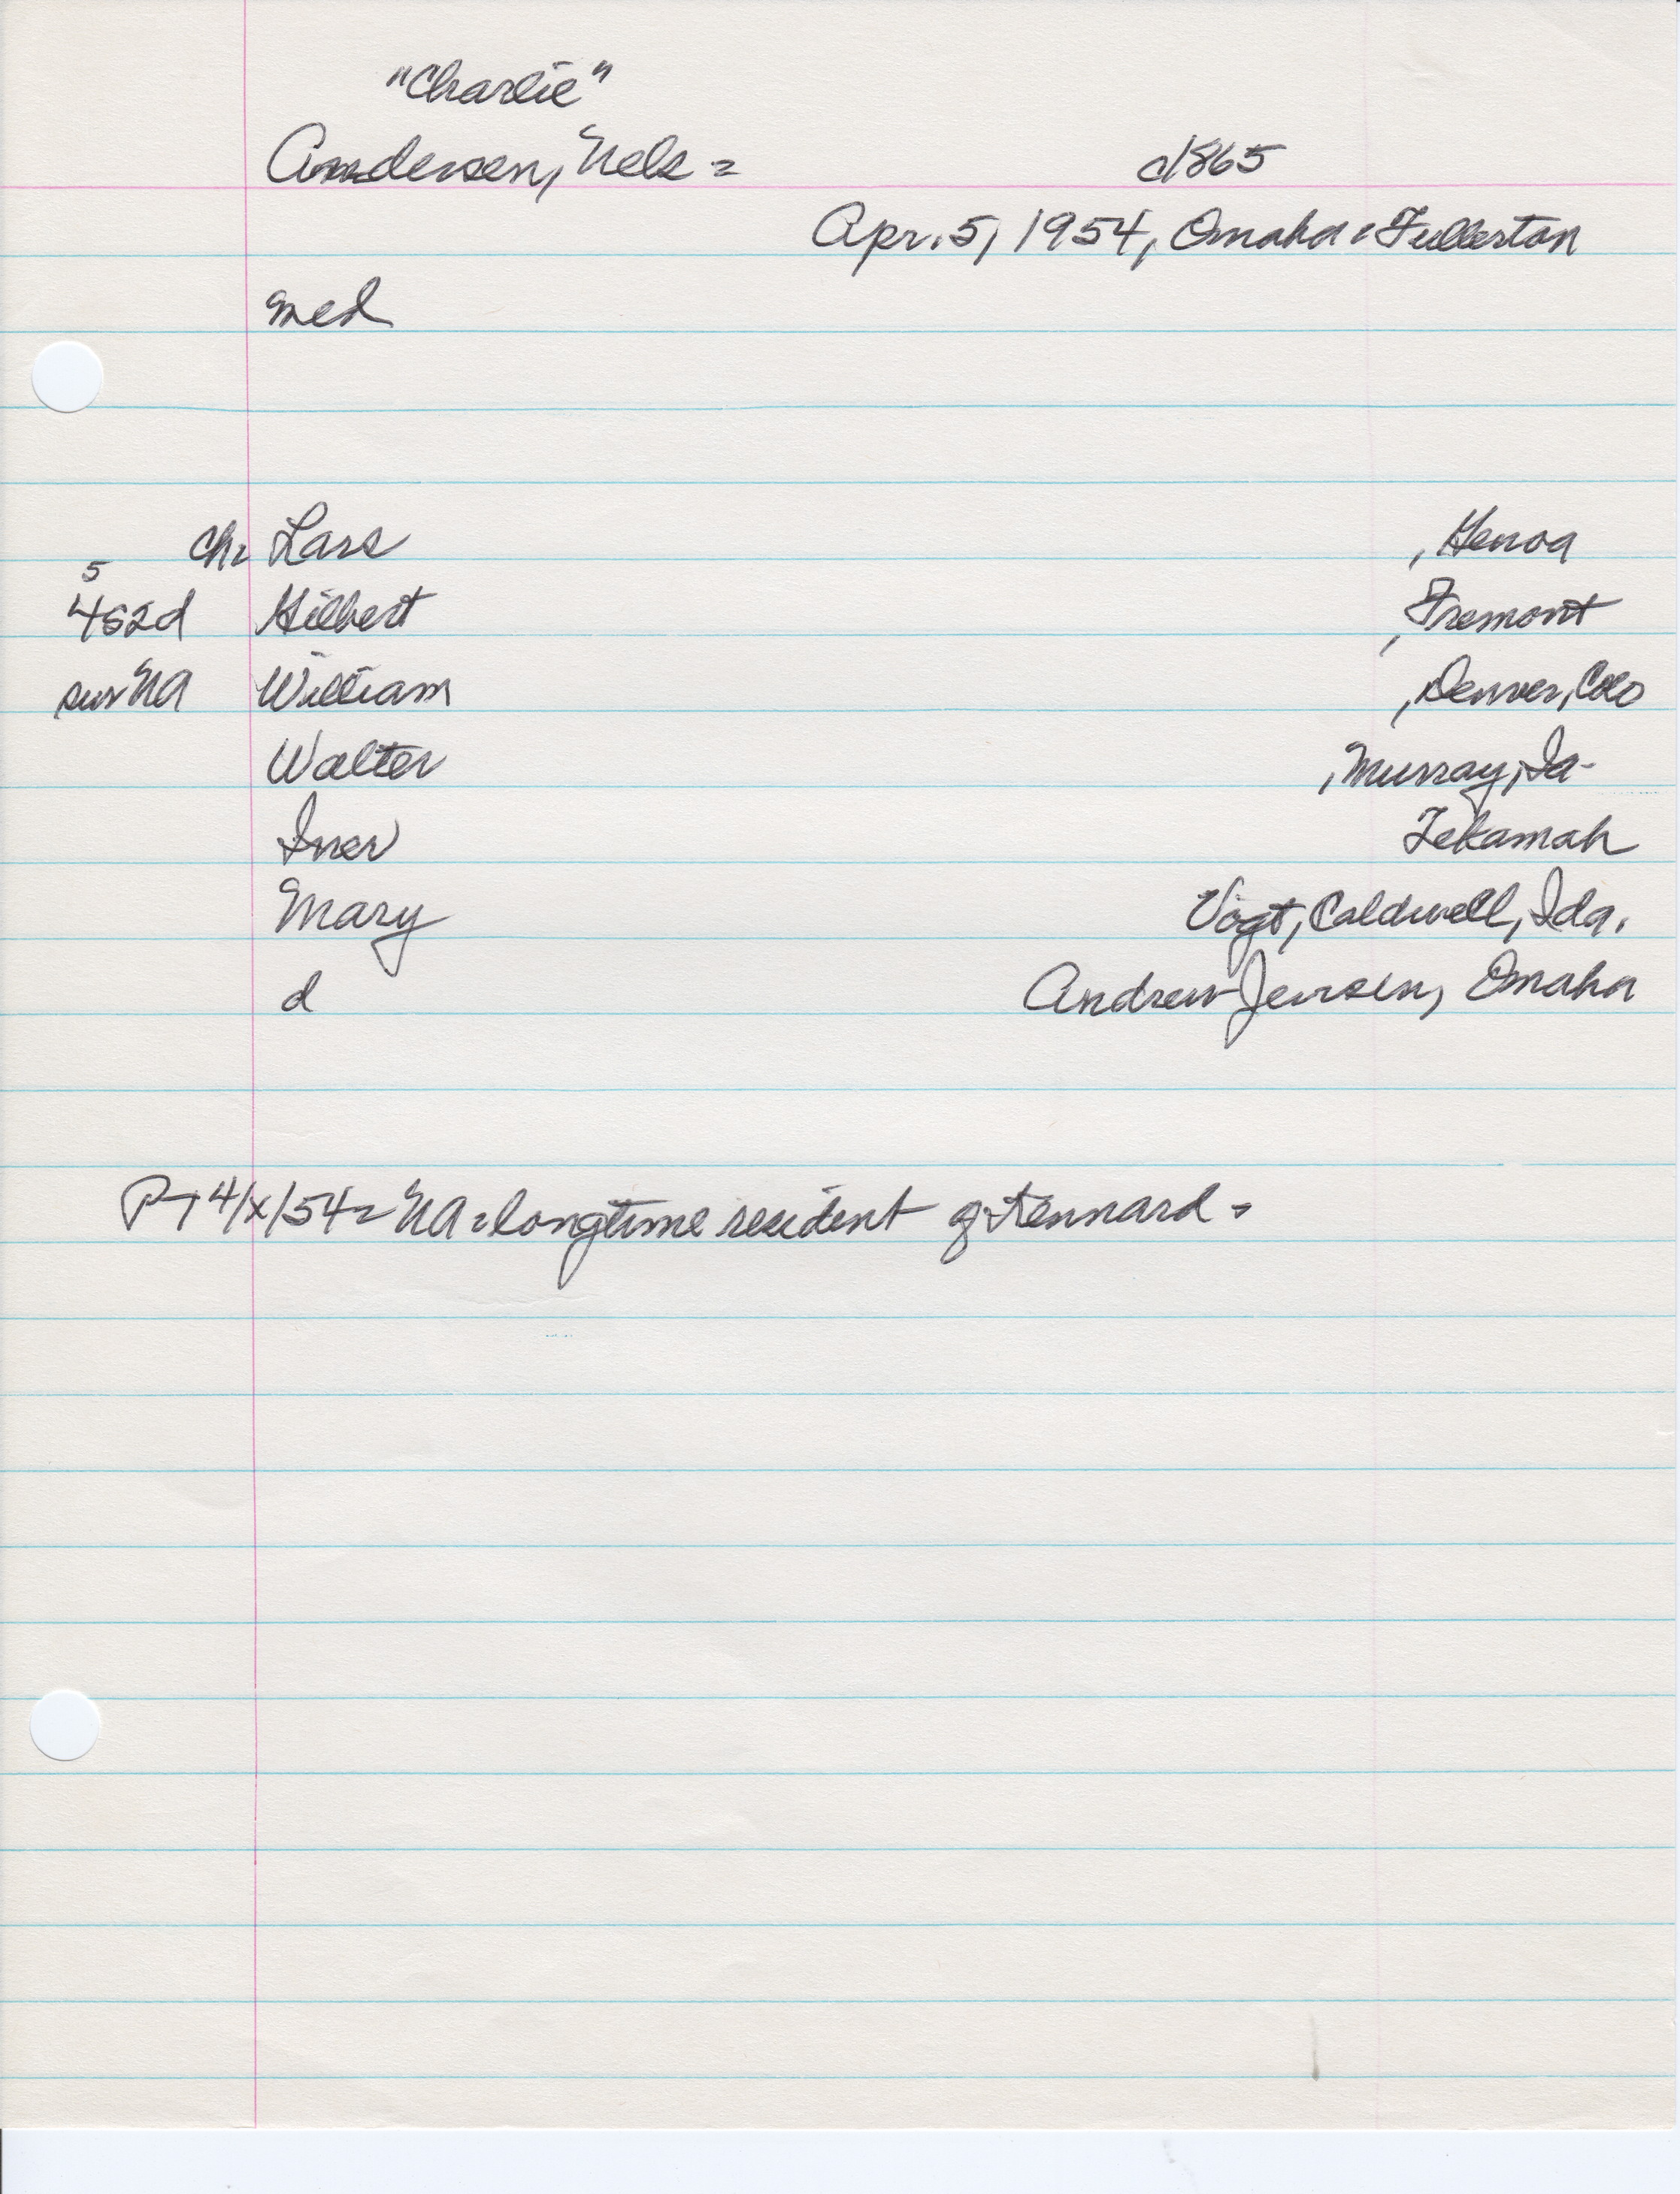 "Charlie"
Andersen, Nels = c1865
Apr. 5, 1954, Omaha = Fullerton
med
Ch= Lars , Genoa
5
4s2d Hilbert , Fremont
sur NA William , Denver, Colo
Walter , Murray, Ia-
Iner Tekamah
Mary Vogt, Caldwell, Ida.
d Andrew Jensen, Omaha
P-T 4/x/54= NA = longtime resident of Kennard =